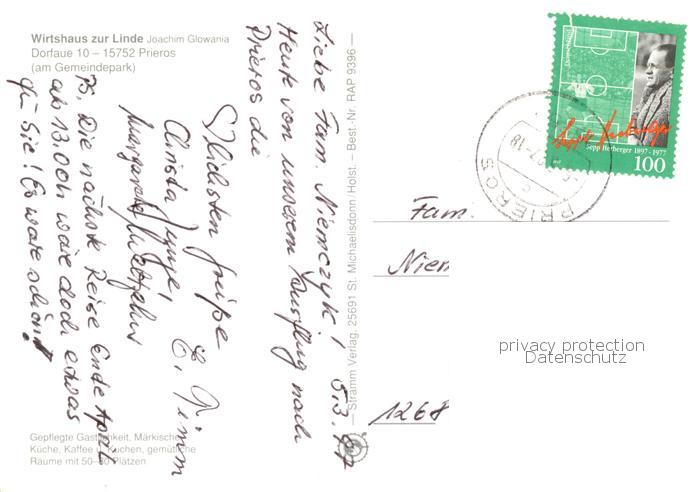 Wirtshaus zur Linde Joachim Glowania
Dorfaue 10 – 15752 Prieros
(am Gemeindepark)
Liebe Fam. Niemczyk! 5.3.97
Heute von unserem Ausflug nach
Prieros die
♡lichsten Grüße
Christa Junge, E. Timm
Margarete
PS. Die nächste Reise Ende April
ab 13.00h wäre doch etwas
für Sie! Es wäre schön!
Gepflegte Gastlichkeit, Märkische
Küche, Kaffee u. Kuchen, gemütliche
Räume mit 50–80 Plätzen
— Stramm Verlag, 25691 St. Michaelisdonn/Holst. – Best.-Nr. RAP 9396 —
Deutschland
Sepp Herberger
Sepp Herberger 1897-1977
100
PRIEROS
Fam.
Niem
1268
privacy protection
Datenschutz